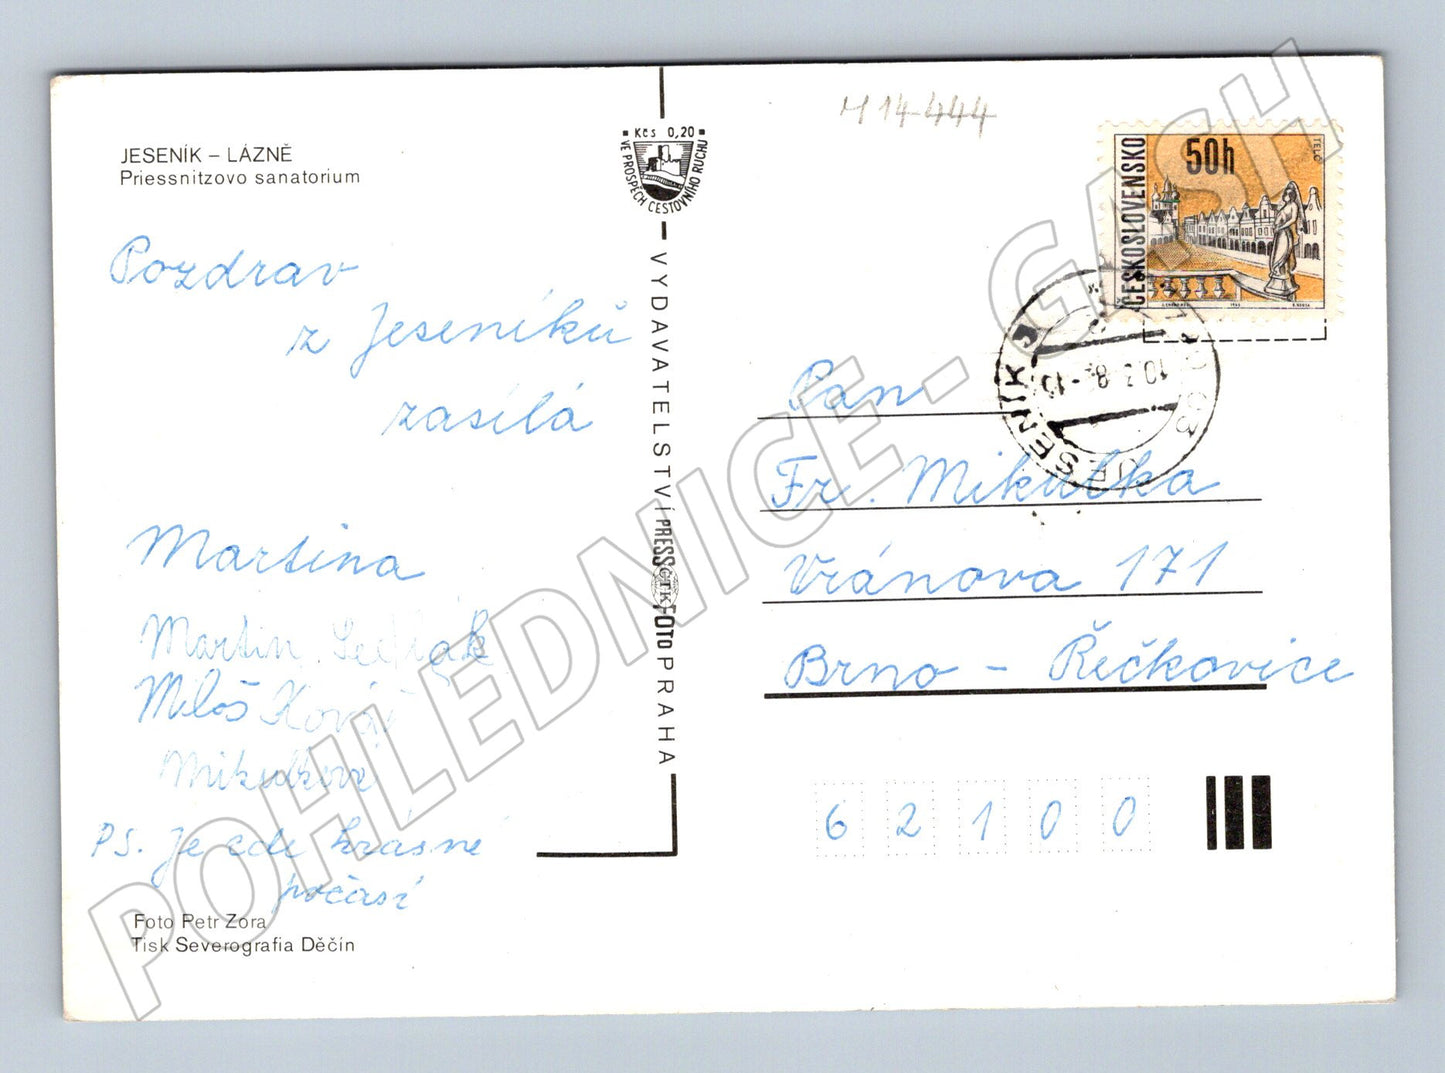 JESENÍK – LÁZNĚ
Priessnitzovo sanatorium
Pozdrav
z Jeseníků
zasílá
Martina
Martin Sedlák
Miloš Kovář
Mikulkova
PS. Je zde krásné
počasí
Foto Petr Zora
Tisk Severografia Děčín
Kčs 0,20
VE PROSPĚCH CESTOVNÍHO RUCHU
VYDAVATELSTVÍ PRESSFOTO PRAHA
ČTK
M 14-444
ČESKOSLOVENSKO
50h
TELČ
JESENÍK
10.3.8
Pan
Fr. Mikulka
Vránova 171
Brno - Řečkovice
62100
POHLEDNICE - GASH